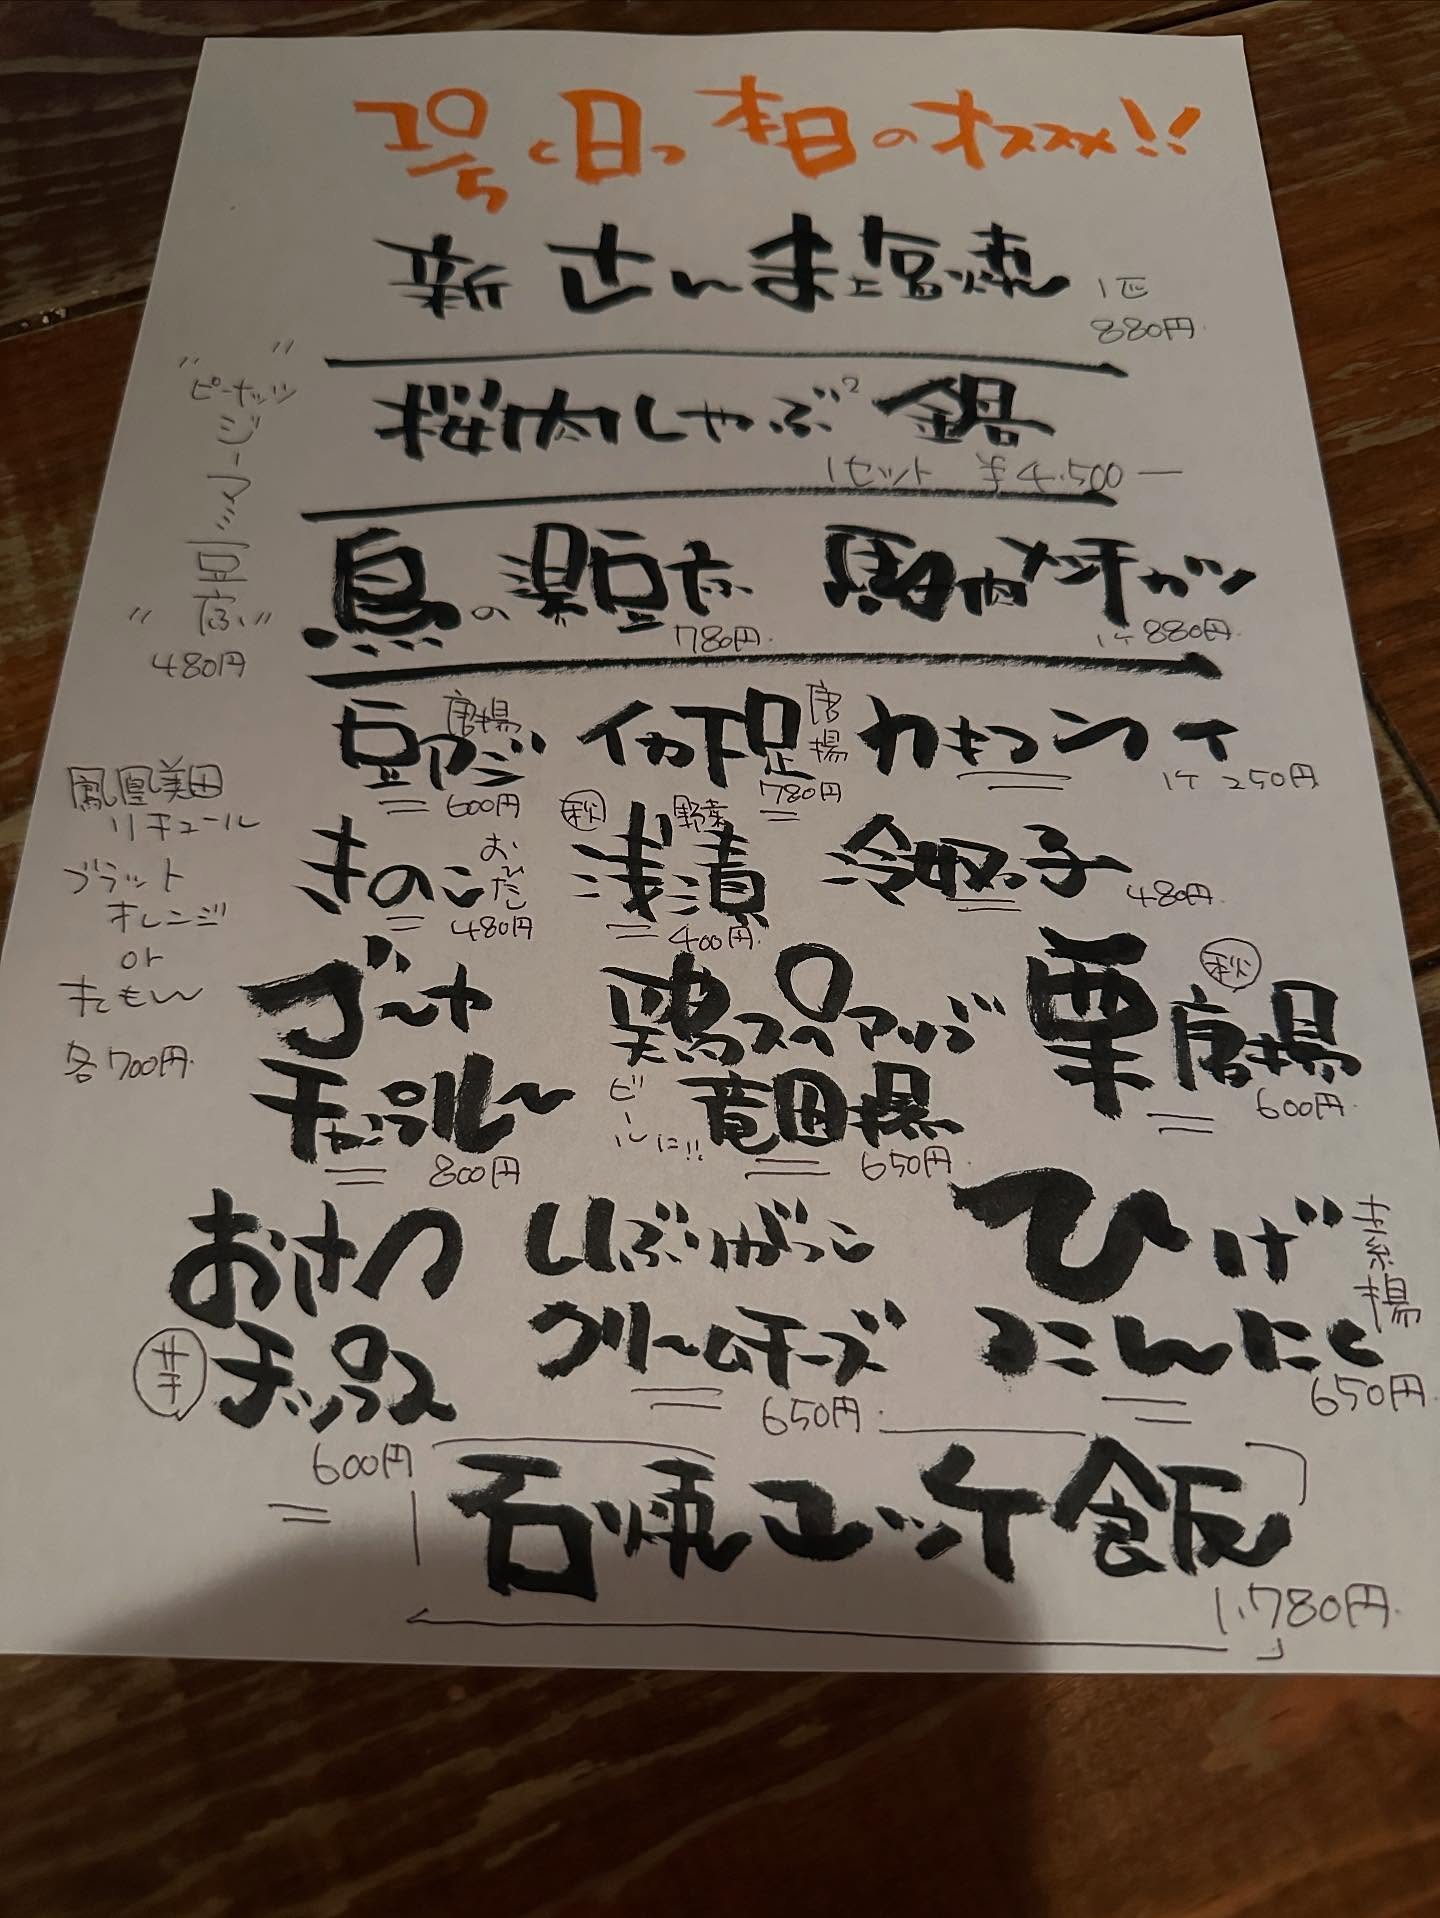 10/5 <日> 本日のオススメ!!
新 さんま塩焼 1匹 880円
桜肉しゃぶ² 鍋
1セット ¥4,500ー
鳥の湯豆腐 780円
馬肉メンチカツ 1ケ 880円
"ピーナッツ"
ジーマミ豆腐
480円
豆アジ 唐揚 600円
イカ下足 唐揚 780円
カキフライ 1ケ 250円
鳳凰美田
リキュール
ブラット
オレンジ
or
れもん
各700円
きのこ おひたし 480円
秋 野菜 浅漬 400円
冷奴っ子 480円
ゴーヤ
チャンプルー
800円
鶏スペアリブ
ビールに!! 竜田揚
650円
栗 秋 唐揚
600円
おさつ
芋 チップス
600円
いぶりがっこ
クリームチーズ
650円
ひげ
こんにく
素揚
650円
石焼ユッケ飯
1,780円